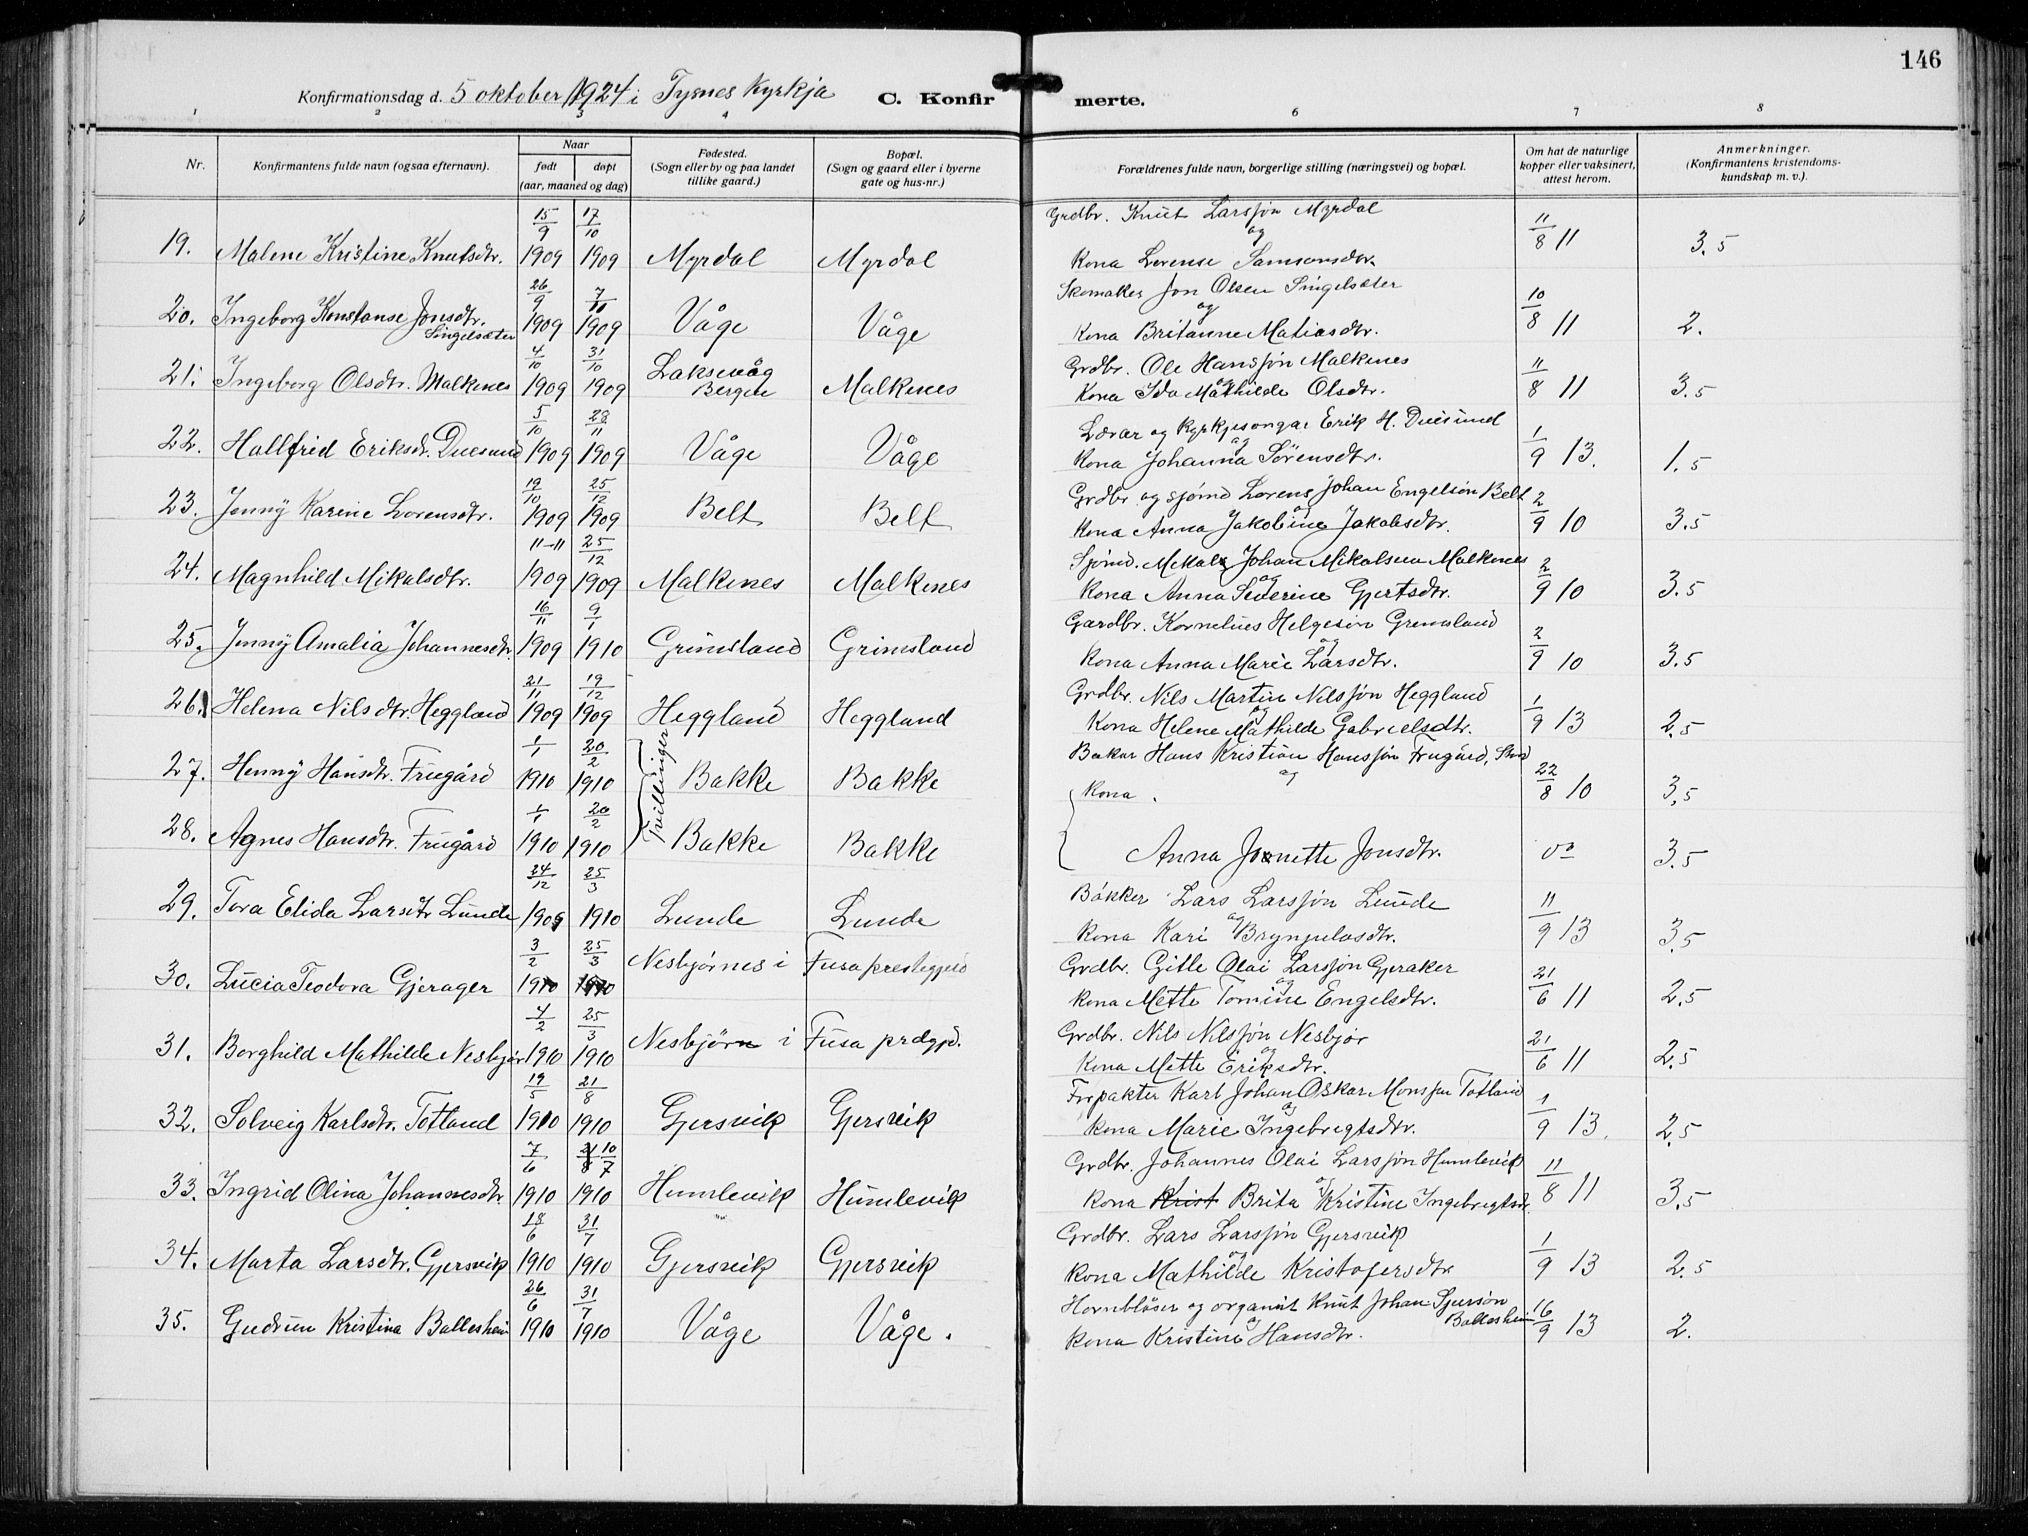 146
Konfirmationsdag d. 5 oktober 1924 i Tysnes Kyrkja C. Konfirmerte.
1 2 3 4 6 7 8
Nr. Konfirmantens fulde navn (ogsaa efternavn). Naar født døpt (aar, maaned og dag) Fødested. (Sogn eller by og paa landet tillike gaard.) Bopæl. (Sogn og gaard eller i byerne gate og hus-nr.) Forældrenes fulde navn, borgerlige stilling (næringsvei) og bopæl. Om hat de naturlige kopper eller vaksinert, attest herom. Anmerkninger. (Konfirmantens kristendomskundskap m. v.).
19. Malene Kristine Knutsdtr. 15/9 1909 17/10 1909 Myrdal Myrdal Grdbr. Knut Larssøn Myrdal og
Kona Lorense Samsonsdtr. 11/8 11 3.5
20. Ingeborg Konstanse Jonsdtr. Singelsæter 26/9 1909 7/11 1909 Våge Våge Skomaker Jon Olsen Singelsæter og
Kona Britanne Matiasdtr. 10/8 11 2.
21. Ingeborg Olsdtr. Malkenes 4/10 1909 31/10 1909 Laksevåg Bergen Malkenes Grdbr. Ole Hanssøn Malkenes og
Kona Ida Mathilde Olsdtr. 11/8 11 3.5
22. Hallfrid Eriksdtr. Duesund 5/10 1909 28/11 1909 Våge Våge Lærar og kyrkjesongar Erik H. Duesund og
Kona Johanna Sörensdtr. 1/9 13. 1.5
23. Jenny Karine Lorensdtr. 19/10 1909 25/12 1909 Belt Belt Grdbr. og sjømd Lorens Johan Engelsøn Belt og
Kona Anna Jakobine Jakobsdtr. 2/9 10 3.5
24. Magnhild Mikalsdtr. 11-11 1909 25/12 1909 Malkenes Malkenes Sjömd. Mikal Johan Mikalsen Malkenes og
Kona Anna Severine Gjertsdtr. 2/9 10 3.5
25. Jenny Amalia Johannesdtr. 16/11 1909 9/1 1910 Grimsland Grimsland Gardbr. Kornelius Helgeson Gremsland og
Kona Anna Marie Larsdtr. 2/9 10 3.5
26. Helena Nilsdtr. Heggland 21/11 1909 19/12 1909 Heggland Heggland Grdbr. Nils Martin Nilssøn Heggland og
Kona Helene Mathilde Gabrielsdtr. 1/9 13 2.5
27. Henny Hansdtr. Frugård 1/1 1910 20/2 1910 Tvillinger Bakke Bakke Bakar Hans Kristian Hanssøn Frugård, Stord og
Kona. 22/8 10 3,5
28. Agnes Hansdtr. Frugård 1/1 1910 20/2 1910 Bakke Bakke Anna Jonette Jonsdtr. do 3.5
29. Tora Elida Larsdtr Lunde 24/12 1909 25/3 1910 Lunde Lunde Bókker Lars Larssøn Lunde og
Kona Kari Brynjulvsdtr. 11/9 13 3.5
30. Lucia Teodora Gjerager 3/2 1910 25/3 1910 Nesbjørnes i Fusa prestegjeld Grdbr. Gitle Olai Larssøn Gjeraker og
Kona Mette Tomine Engelsdtr. 21/6 11 2.5
31. Borghild Mathilde Nesbjør 4/2 1910 25/3 1910 Nesbjørn i Fusa prdgjd. Grdbr. Nils Nilssøn Nesbjør og
Kona Mette Eriksdtr. 21/6 11 2.5
32. Solveig Karlsdtr. Totland 19/5 1910 21/8 1910 Gjersvik Gjersvik Forpakter Karl Johan Oskar Monssøn Totland og
Kona Marie Ingebregtsdtr. 1/9 13. 2.5
33. Ingrid Olina Johannesdtr. 7/6 1910 10/7 1910 Humlevik Humlevik Grdbr. Johannes Olai Larssøn Humlevik og
Kona Krist Brita Kristine Ingebregtsdr. 11/8 11 3.5
34. Marta Larsdtr. Gjersvik 18/6 1910 31/7 1910 Gjersvik Gjersvik Grdbr. Lars Larssøn Gjersvik og
Kona Mathilde Kristofersdtr 1/9 13 2.5
35. Gudrun Kristina Ballesheim 26/6 1910 31/7 1910 Våge Våge. Hornblåser og organist Knut Johan Sjursøn Ballesheim og
Kona Kristine Hansdtr. 16/9 13 2.